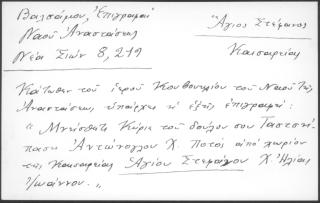 Βαλσάμου, Ἐπιγραφαὶ
Ναοῦ Ἀναστάσεως
Νέα Σιὼν 8, 219
Ἅγιος Στέφανος
Καισαρείας
Κάτωθεν τοῦ ἱεροῦ Κουβουκλίου τοῦ Ναοῦ τῆς
Ἀναστάσεως ὑπάρχει ἡ ἑξῆς ἐπιγραφή:
"Μνήσθητι Κύριε τοῦ δούλου σου
Χ. ἀπὸ χωρίον
τῆς Καισαρείας Ἁγίου Στεφάνου Χ. Ἠλίας
Ἰωάννου."